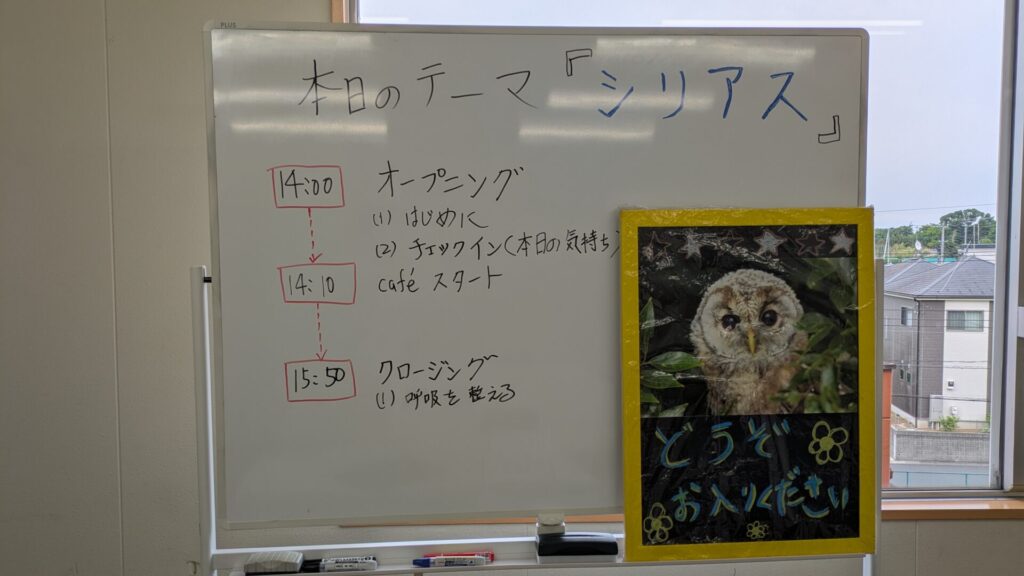 PLUS
本日のテーマ『シリアス』
14:00 オープニング
(1) はじめに
(2) チェックイン(本日の気持ち)
14:10 café スタート
15:50 クロージング
(1) 呼吸を整える
どうぞ
お入りください